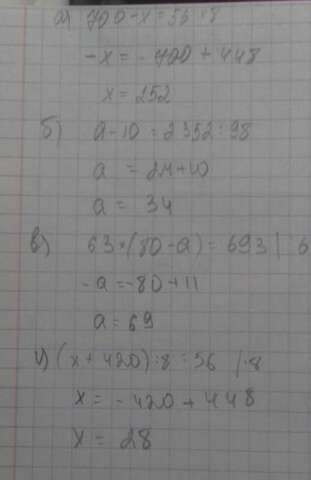 а) 700-x=56·8
-x=-700+448
x=252
б) a-10=2352:98
a=24+10
a=34
в) 63·(80-a)=693| 6
-a=-80+11
a=69
г) (x+420):8=56 |·8
x=-420+448
x=28